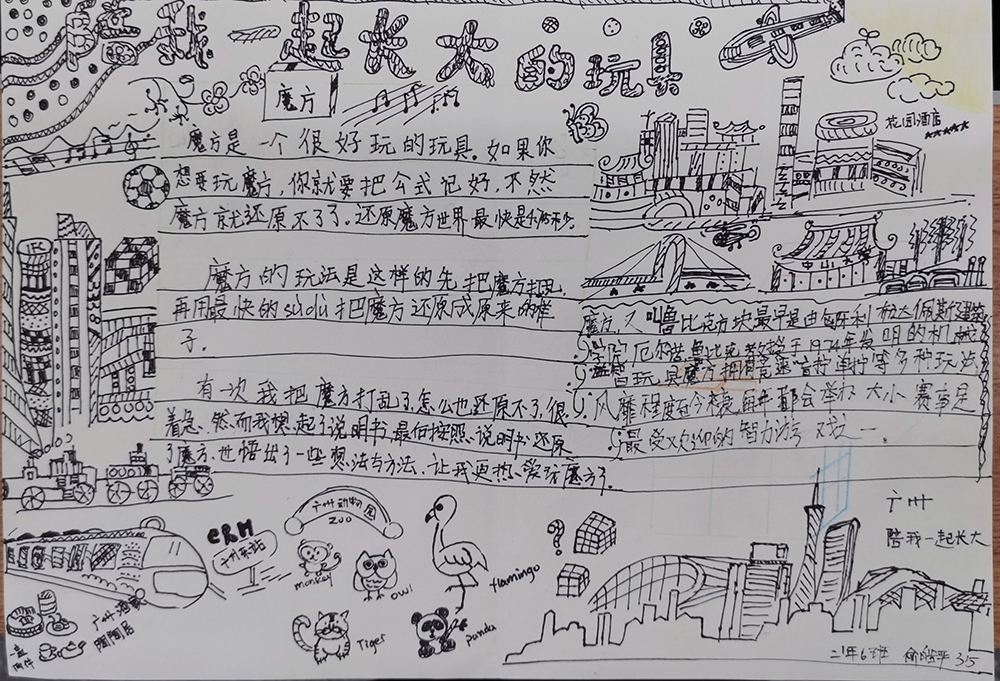 陪我一起长大的玩具
魔方
魔方是一个很好玩的玩具。如果你
想要玩魔方,你就要把公式记好,不然
魔方就还原不了了。还原魔方世界最快是
魔方的玩法是这样的先把魔方打乱,
再用最快的sudu把魔方还原成原来的样
子.
有一次我把魔方打乱了,怎么也还原不了,很
着急.然而我想起了说明书,最后按照说明书还原
了魔方.也悟出了一些想法与方法,让我更热爱玩魔方了.
花园酒店
★★★★★
中山
魔方,又叫鲁比克方块最早是由匈牙利布达佩斯建筑
学院厄尔诺鲁比克教授于1974年发明的机械
益智玩具魔方拥有竞速盲拧单拧等多种玩法
风靡程度至今未衰,每年都会举办大小赛事是
最受欢迎的智力游戏之一.
CRH
广州东站
广州动物园
ZOO
monkey
owl
flamingo
Tiger
panda
广州酒家
陶陶居
一盅
两件
?
广州
陪我一起长大
二年6班 35